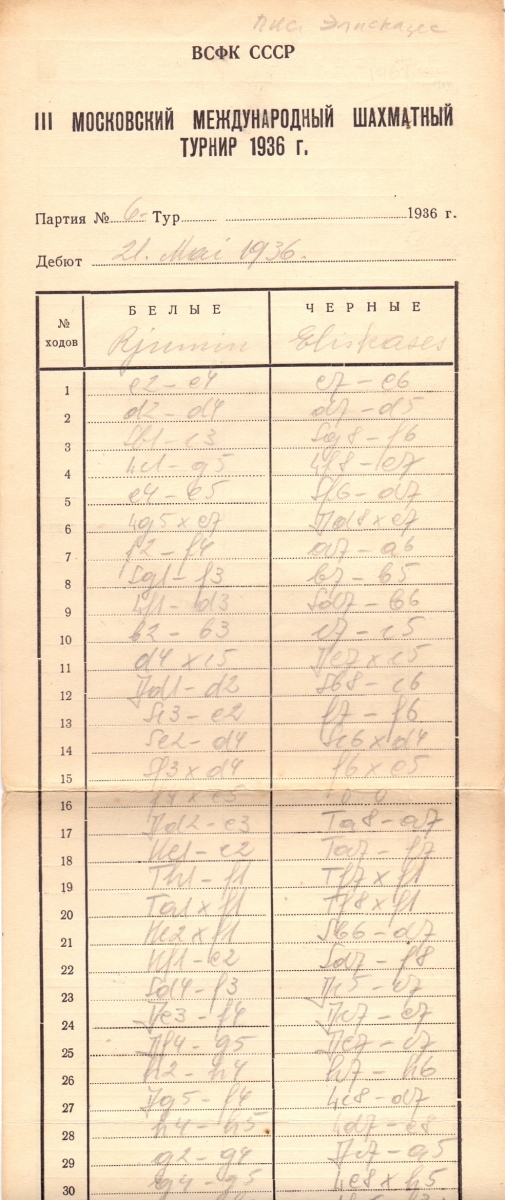 Элисказес
ВСФК СССР
III МОСКОВСКИЙ МЕЖДУНАРОДНЫЙ ШАХМАТНЫЙ
ТУРНИР 1936 г.
Партия № 6 Тур 1936 г.
Дебют 21. Mai 1936.
№ ходов БЕЛЫЕ ЧЕРНЫЕ
Rjumin Eliskases
1 e2 – e4 e7 – e6
2 d2 – d4 d7 – d5
3 Sb1 – c3 Sg8 – f6
4 Lc1 – g5 Lf8 – e7
5 e4 – e5 Sf6 – d7
6 Lg5 x e7 Dd8 x e7
7 f2 – f4 a7 – a6
8 Sg1 – f3 b7 – b5
9 Lf1 – d3 Sd7 – b6
10 b2 – b3 c7 – c5
11 d4 x c5 De7 x c5
12 Dd1 – d2 Sb8 – c6
13 Sc3 – e2 f7 – f6
14 Se2 – d4 Sc6 x d4
15 Sf3 x d4 f6 x e5
16 f4 x e5 0 – 0
17 Dd2 – e3 Ta8 – a7
18 Ke1 – e2 Ta7 – f7
19 Th1 – f1 Tf7 x f1
20 Ta1 x f1 Tf8 x f1
21 Ke2 x f1 Sb6 – d7
22 Kf1 – e2 Sd7 – f8
23 Sd4 – f3 Dc5 – c7
24 De3 – f4 Dc7 – e7
25 Df4 – g5 De7 – c7
26 h2 – h4 h7 – h6
27 Dg5 – f4 Lc8 – d7
28 h4 – h5 Ld7 – e8
29 g2 – g4 Dc7 – a5
30 g4 – g5 Le8 x h5